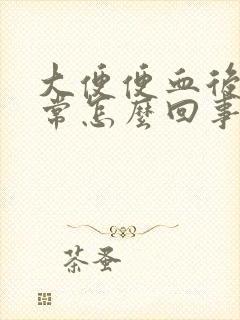 大便便血後
常怎麼回事
茶蚤